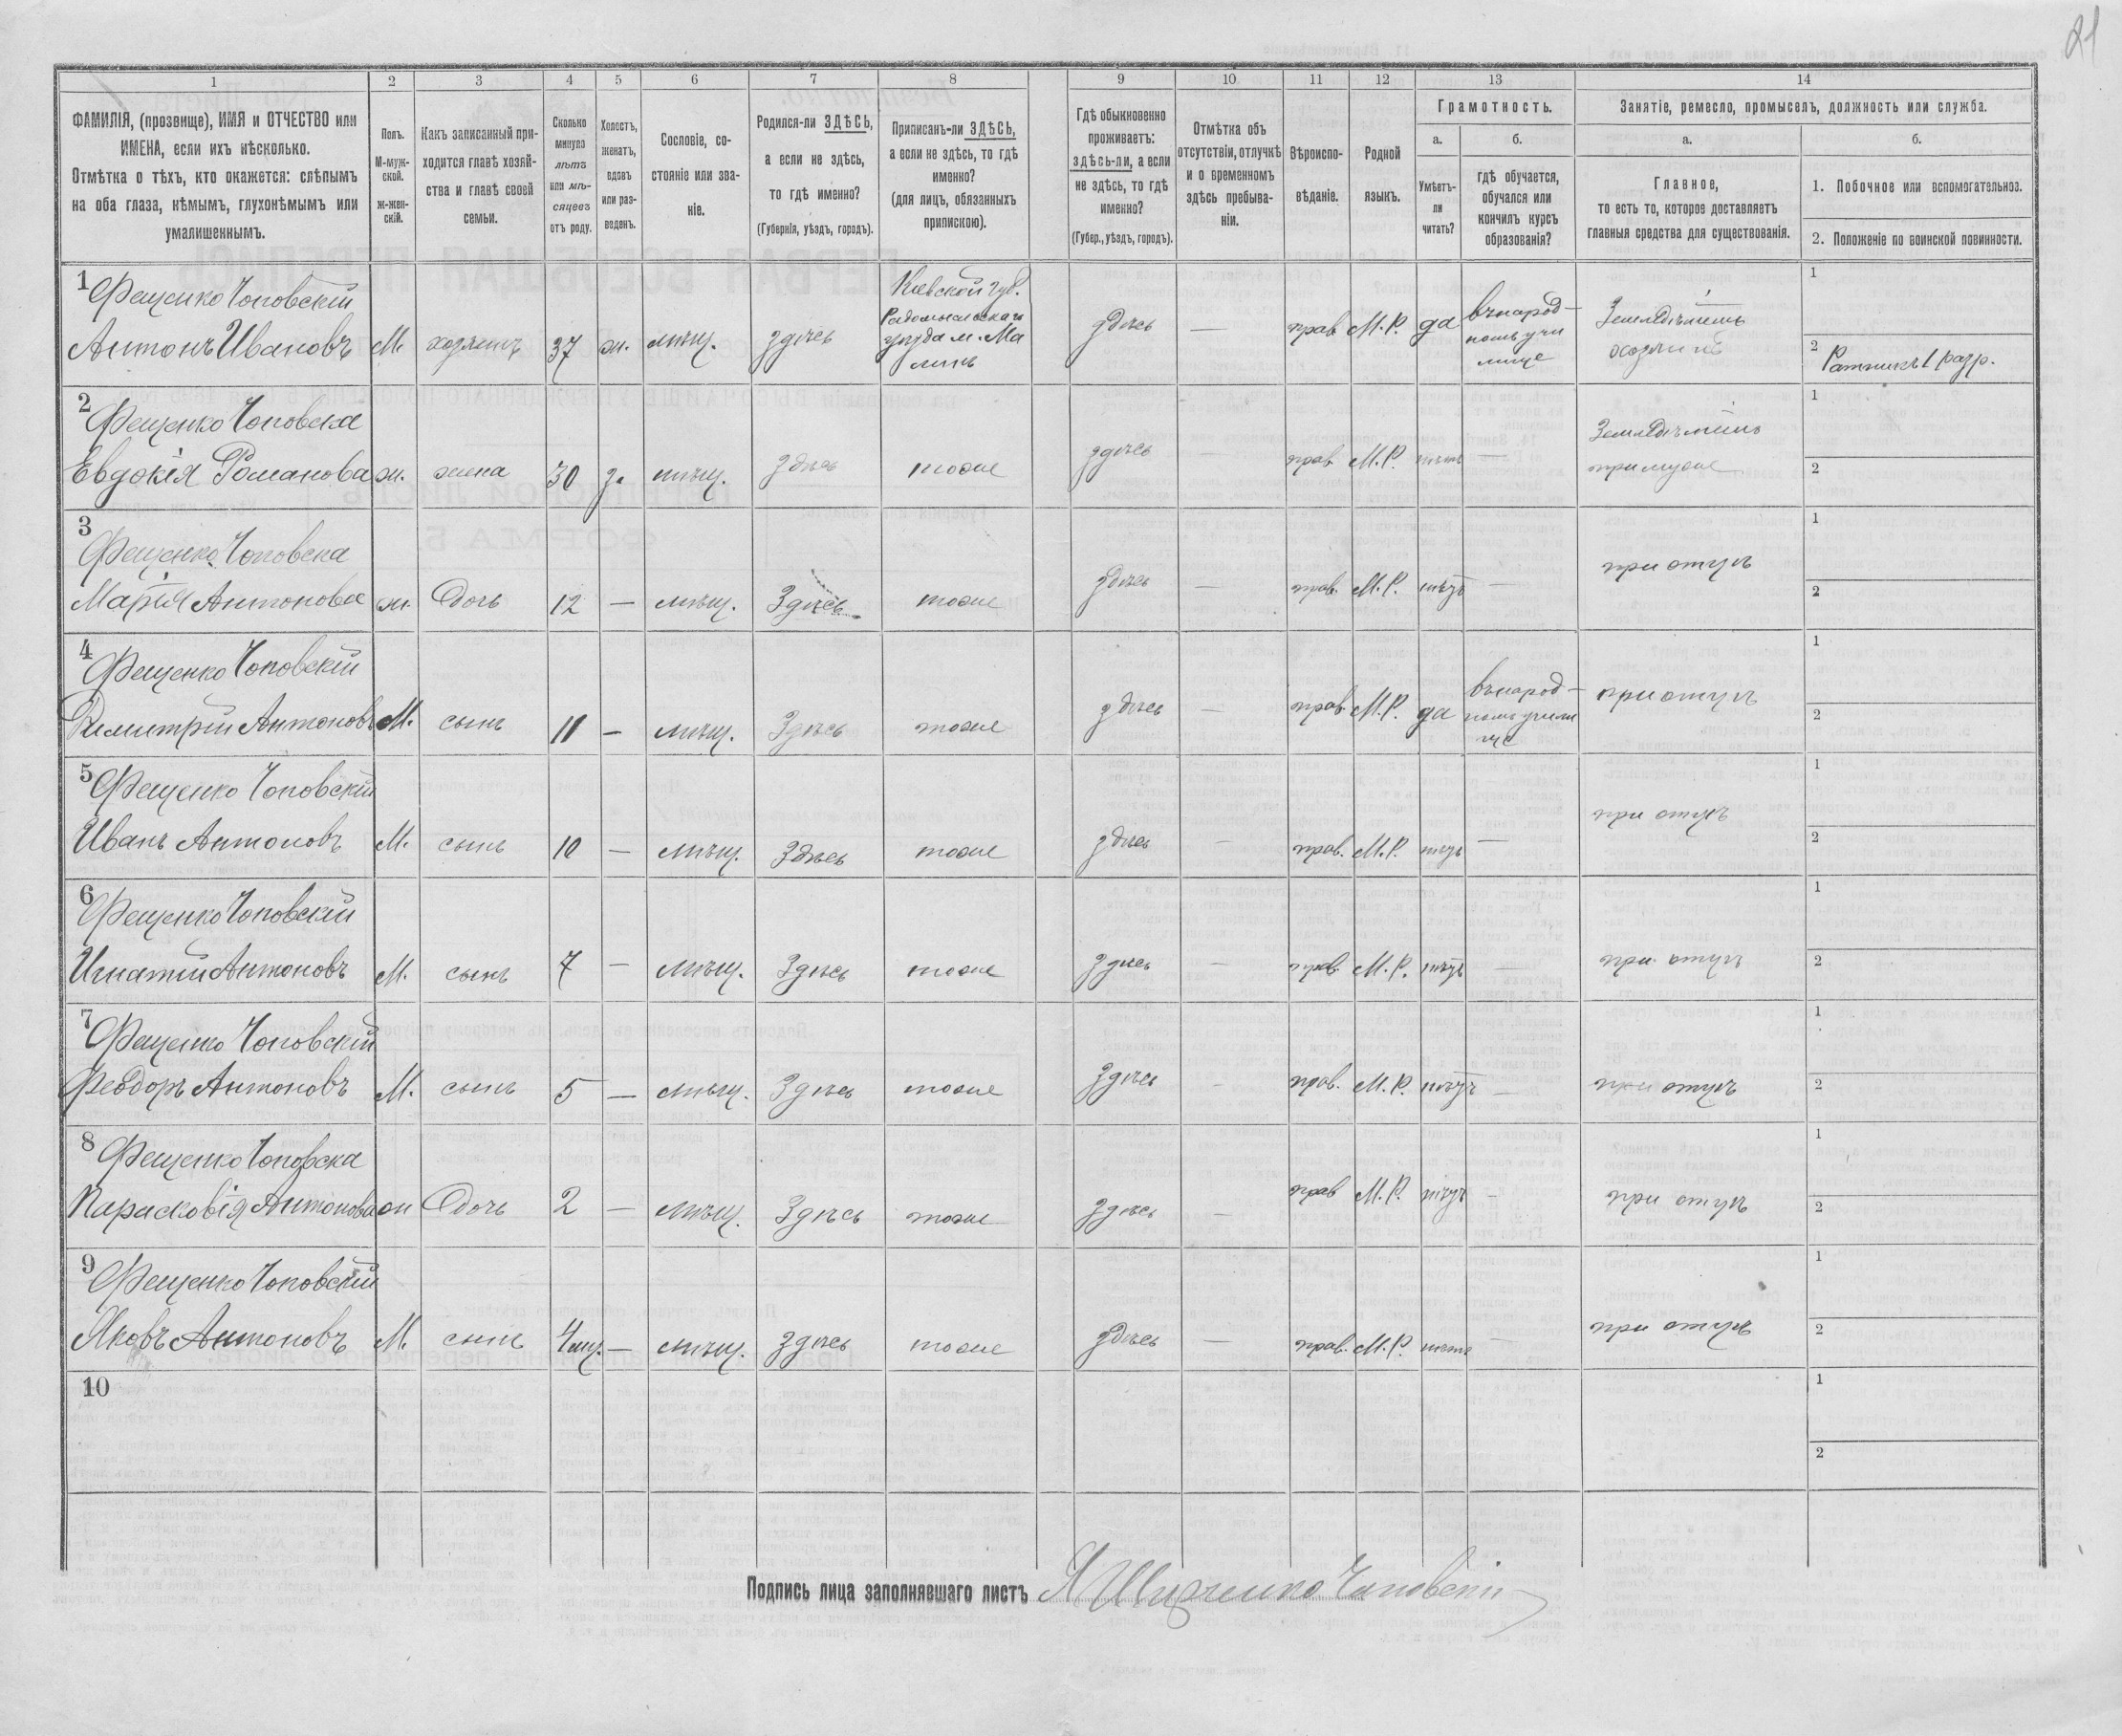 21
1 2 3 4 5 6 7 8 9 10 11 12 13 14
ФАМИЛІЯ, (прозвище), ИМЯ и ОТЧЕСТВО или
ИМЕНА, если ихъ нѣсколько.
Отмѣтка о тѣхъ, кто окажется: слѣпымъ
на оба глаза, нѣмымъ, глухонѣмымъ или
умалишеннымъ.
Полъ.
М-муж-
ской.
ж-жен-
скій.
Какъ записанный при-
ходится главѣ хозяй-
ства и главѣ своей
семьи.
Сколько
минуло
лѣтъ
или мѣ-
сяцевъ
отъ роду.
Холостъ,
женатъ,
вдовъ
или раз-
веденъ.
Сословіе, со-
стояніе или зва-
ніе.
Родился-ли ЗДѢСЬ,
а если не здѣсь,
то гдѣ именно?
(Губернія, уѣздъ, городъ).
Приписанъ-ли ЗДѢСЬ,
а если не здѣсь, то гдѣ
именно?
(для лицъ, обязанныхъ
припискою).
Гдѣ обыкновенно
проживаетъ:
здѣсь-ли, а если
не здѣсь, то гдѣ
именно?
(Губер., уѣздъ, городъ).
Отмѣтка объ
отсутствіи, отлучкѣ
и о временномъ
здѣсь пребыва-
ніи.
Вѣроиспо-
вѣданіе.
Родной
языкъ.
Грамотность.
а. б.
Умѣетъ-
ли
читать?
гдѣ обучается,
обучался или
кончилъ курсъ
образованія?
Занятіе, ремесло, промыселъ, должность или служба.
а. б.
Главное,
то есть то, которое доставляетъ
главныя средства для существованія.
1. Побочное или вспомогательное.
2. Положеніе по воинской повинности.
1 Фещенко Чоповскій
Антонъ Ивановъ М. хозяинъ 37 ж. мѣщ. здѣсь
Кіевской губ.
Радомысльскаго
уѣзда м. Ма
линъ
здѣсь — прав М.Р. да
въ народ-
номъ учи
лище
Земледѣлецъ
хозяинъ
1
2 Ратникъ 1 разр.
2 Фещенко Чоповска
Евдокія Романова ж. жена 30 з. мѣщ. здѣсь тоже здѣсь — прав. М.Р. нѣтъ —
Земледѣлецъ
при мужѣ
1
2
3 Фещенко Чоповска
Марія Антонова ж. дочь 12 — мѣщ. Здѣсь тоже здѣсь — прав. М.Р. нѣтъ — при отцѣ
1
2
4 Фещенко Чоповскій
Димитрій Антоновъ М. сынъ 11 — мѣщ. Здѣсь тоже здѣсь — прав. М.Р. да
въ народ-
номъ учили
ще
при отцѣ
1
2
5 Фещенко Чоповскій
Иванъ Антоновъ М. сынъ 10 — мѣщ. Здѣсь тоже здѣсь — прав. М.Р. нѣтъ — при отцѣ
1
2
6 Фещенко Чоповскій
Игнатій Антоновъ М. сынъ 7 — мѣщ. Здѣсь тоже здѣсь — прав. М.Р. нѣтъ — при отцѣ
1
2
7 Фещенко Чоповскій
Феодоръ Антоновъ М. сынъ 5 — мѣщ. Здѣсь тоже здѣсь — прав. М.Р. нѣтъ — при отцѣ
1
2
8 Фещенко Чоповска
Парасковія Антонова ж дочь 2 — мѣщ. Здѣсь тоже здѣсь — прав М.Р. нѣтъ — при отцѣ
1
2
9 Фещенко Чоповскій
Яковъ Антоновъ М. сынъ 4 мѣ. — мѣщ. здѣсь тоже здѣсь — прав. М.Р. нѣтъ — при отцѣ
1
2
10
1
2
Подпись лица заполнявшаго листъ Чоповскій